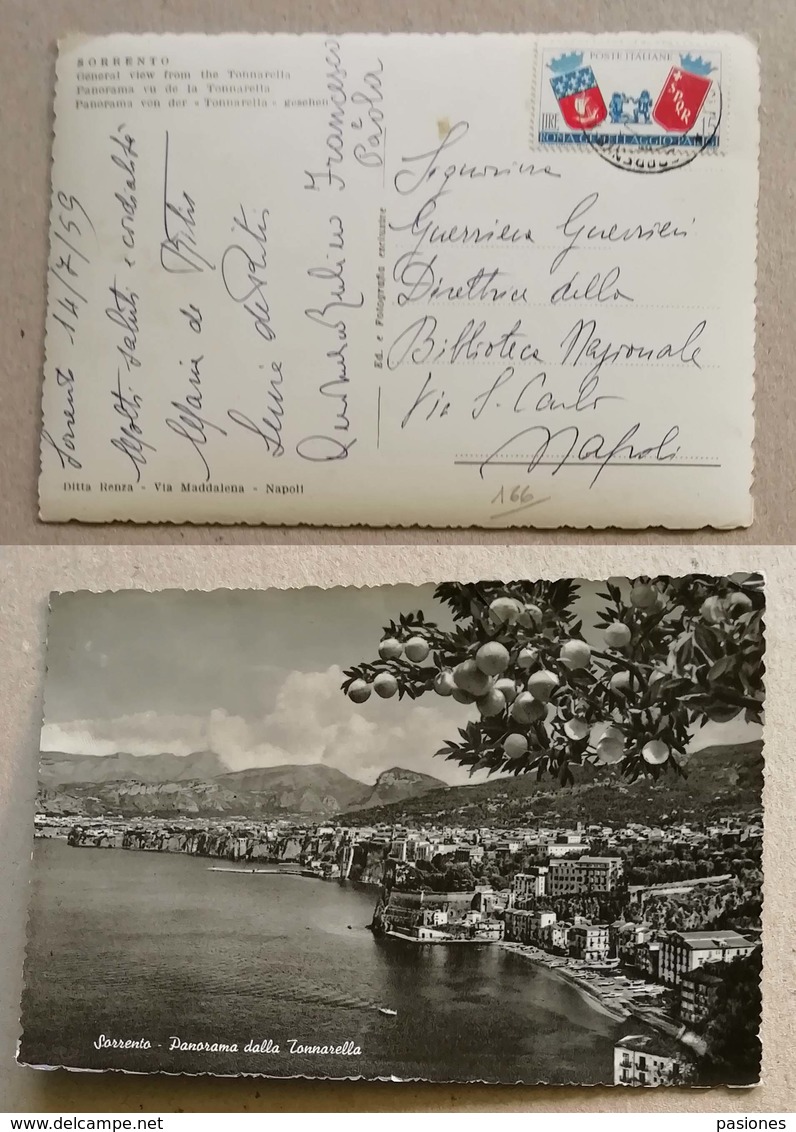 SORRENTO
General view from the Tonnarella
Panorama vu de la Tonnarella
Panorama von der «Tonnarella» gesehen
Sorrento 14/7/59
Molti saluti e cordialità
Maria de
Francesco
Paola
Ed. e Fotografia esclusive
POSTE ITALIANE
SPQR
LIRE 15
ROMA GEMELLAGGIO PARIGI
Signorina
Guerriera Guerrieri
Direttrice della
Biblioteca Nazionale
Via S. Carlo
Napoli
Ditta Renza - Via Maddalena - Napoli
166
Sorrento - Panorama dalla Tonnarella
pasiones